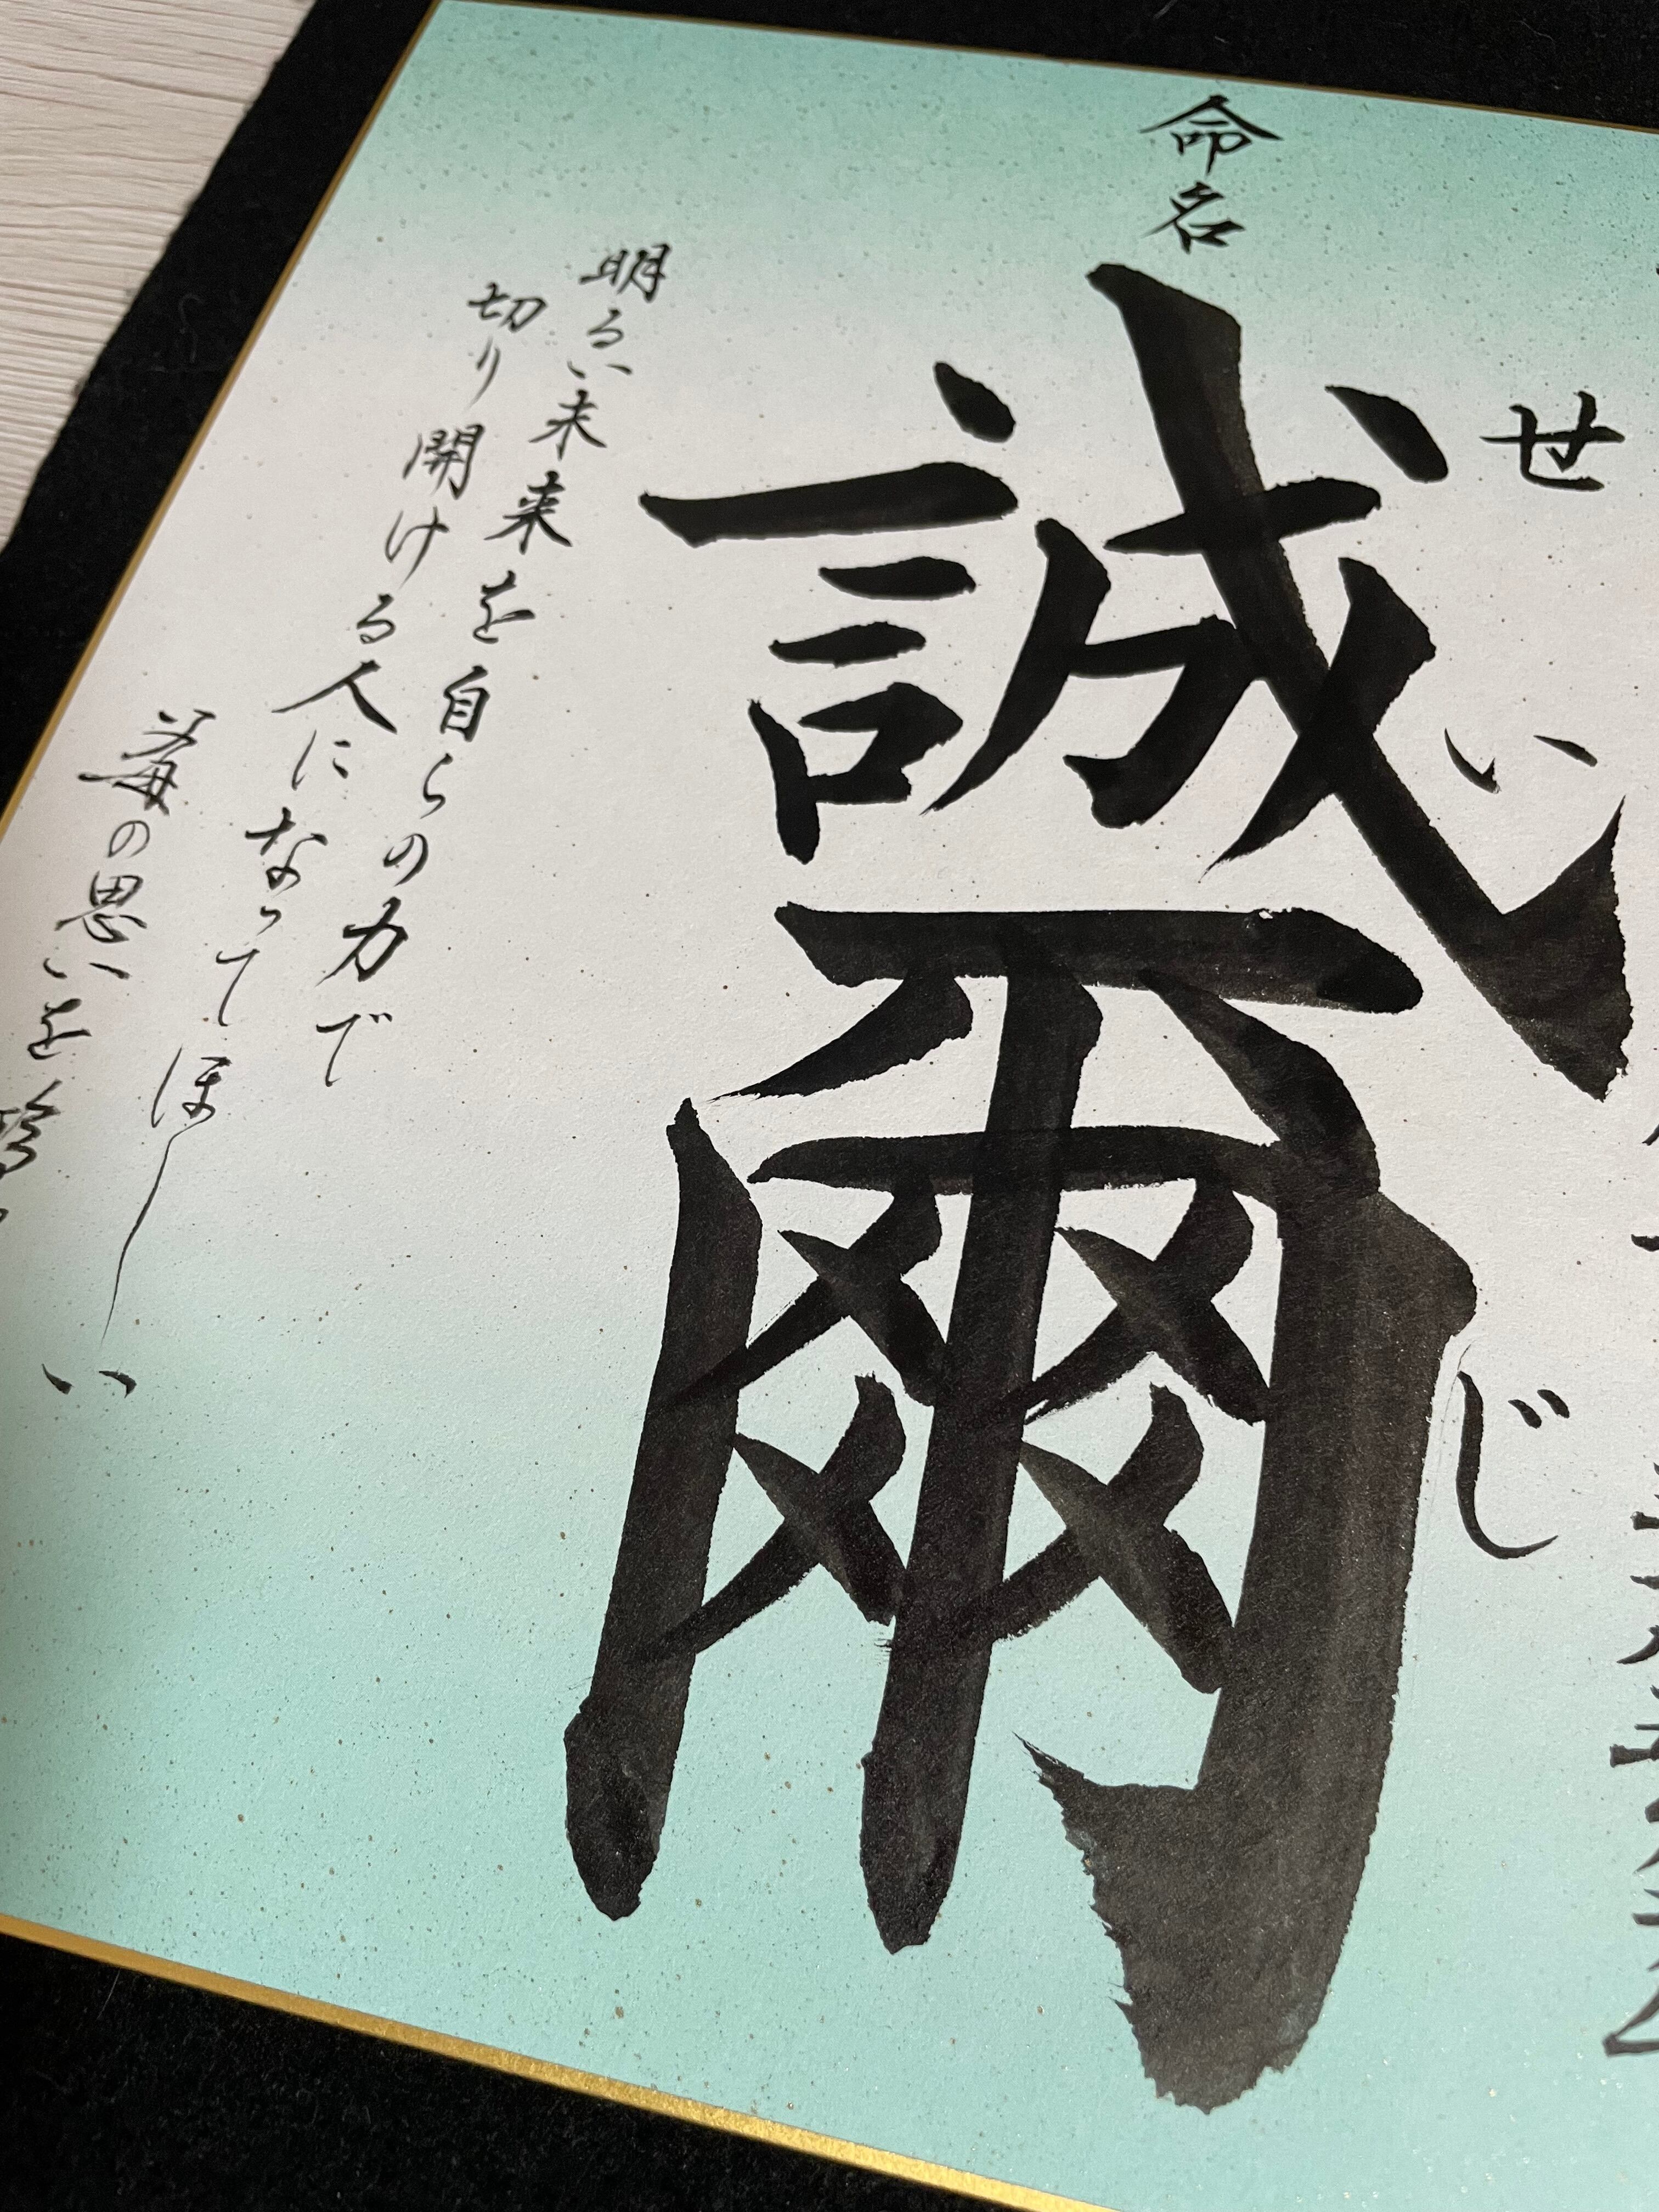 せいじ
命名
誠爾
明るい未来を自らの力で
切り開ける人になってほしい
の思いを